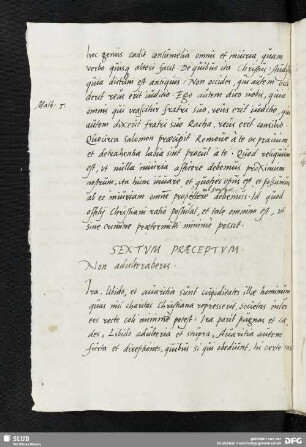 hoc genus cadit contumelia omnis et iniuria quam
verbo quisque alteri facit. De quibus ita Christus: Audistis
quia dictum est antiquis: Non occides, qui autem occi
derit reus erit iudicio. Ego autem dico vobis, quia
Matt. 5.
omnis qui irascitur fratri suo, reus erit iudicio, qui
autem dixerit fratri suo Racha, reus erit consilio
Quocirca Salomon praecipit Remove a te os pravum
et detrahentia labia sint procul a te. Quod reliquum
est, ut nulla iniuria afficere debemus proximum
nostrum, ita hunc iuvare et quoties opus est, et possumus
ab eo iniuriam omnem propulsare debemus. Id quod
officij Christiani ratio postulat, et tale omnino est, ut
sine crimine praetermitti minime possit.
SEXTUM PRAECEPTUM.
Non adulteraberis.
Ira, libido, et avaritia sunt cupiditates illae hominum
quas nisi charitas Christiana represserit, societas inter
eos recte coli minime potest. Ira parit pugnas et cae
des, Libido adulteria et stupra, Avaritia autem
furta et direptiones, quibus si qui obediunt, hi certe
SLUB
DFG